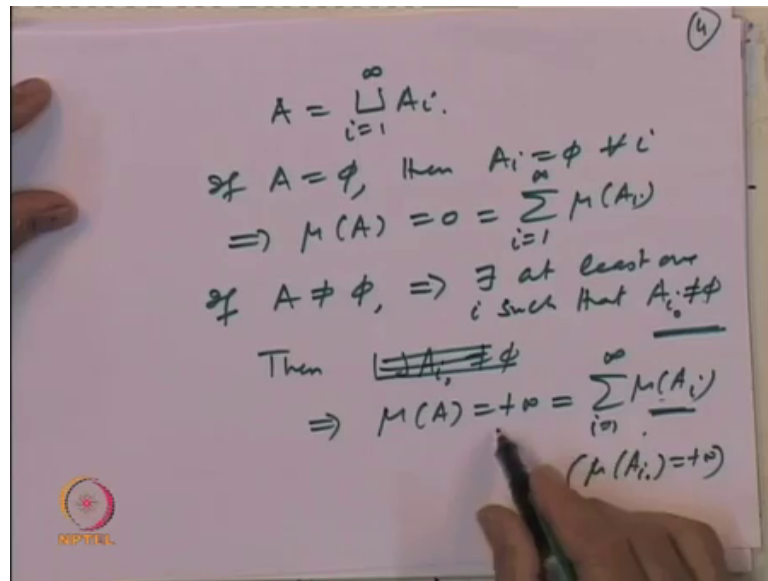 4
A = ∞⊔i=1 Ai.
If A = φ, then Ai = φ ∀ i
=> μ(A) = 0 = ∞∑i=1 μ(Ai)
If A ≠ φ, => ∃ at least one
i such that Ai₀ ≠ φ
Then
=> μ(A) = +∞ = ∞∑i=1 μ(Ai)
(μ(Ai₀) = +∞)
NPTEL